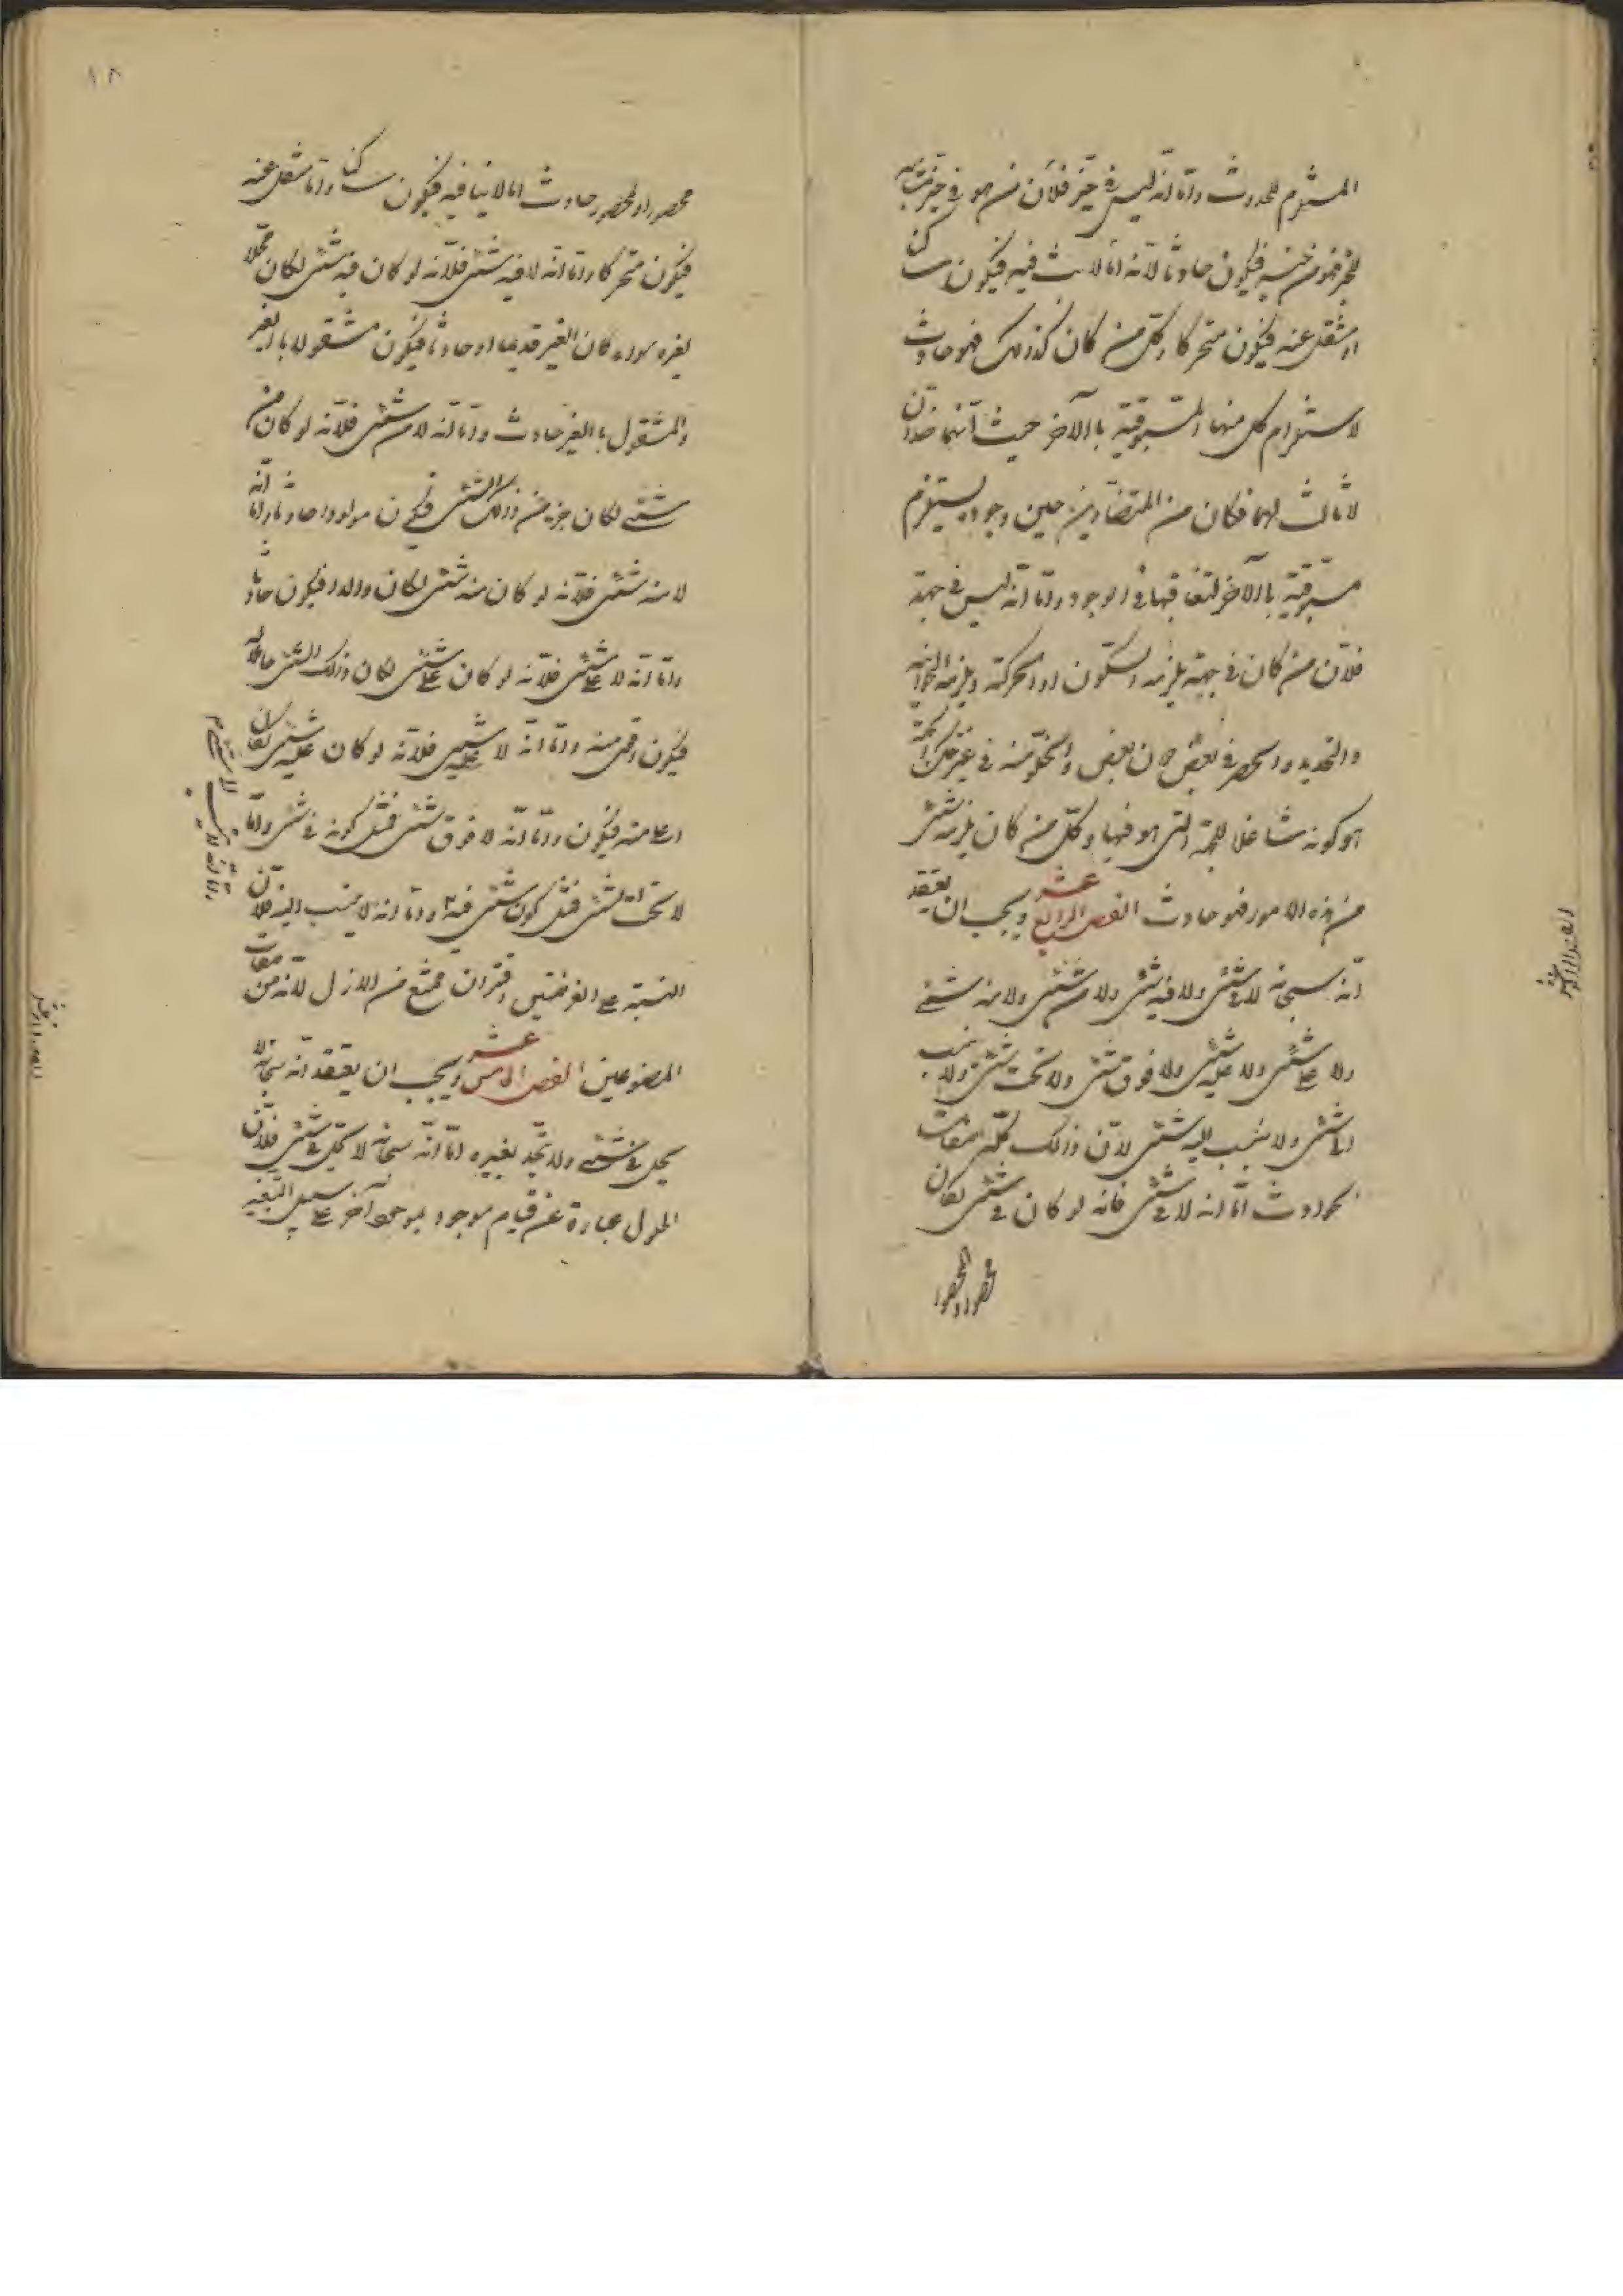 المستلزم للحدوث واما انه ليس في حيز فلان من هو في حيز
للحيز فهو من جنسه فيكون حادثا لانه اما لابث فيه فيكون ساكنا
او منتقل عنه فيكون متحركا وكل من كان كذلك فهو حادث
لاستلزام كل منهما المسبوقية بالآخر حيث انهما ضدان
لا ثالث لهما فكان من المتضادين حين وجوده يستلزم
مسبوقية بالآخر لتعاقبهما في الوجود واما انه ليس في جهة
فلان من كان في جهة يلزمه السكون او الحركة ويلزمه
والتحديد والحصر في بعض دون بعض والخلو منه في غير تلك الجهة
هو كونه شاغلا للجهة التي هو فيها وكل من كان يلزمه شيء
من هذه الامور فهو حادث الفصل الرابع عشر ويجب ان يعتقد
انه سبحانه لا في شيء ولا فيه شيء ولا من شيء ولا منه شيء
ولا على شيء ولا عليه شيء ولا فوق شيء ولا تحت شيء ولا ينسب
الى شيء ولا ينسب اليه شيء لان ذلك كله صفات
الحوادث اما انه لا في شيء فانه لو كان في شيء لكان
محصورا والمحصور
محصورا والمحصور حادث اما لابثا فيه فيكون ساكنا واما منتقل عنه
فيكون متحركا واما انه لا فيه شيء فلانه لو كان فيه شيء لكان محلا
لغيره سواء كان الغير قديما او حادثا فيكون مشغولا بالغير
والمشغول بالغير حادث واما انه لا من شيء فلانه لو كان من
شيء لكان جزء من ذلك الشيء فيكون مولودا حادثا واما انه
لا منه شيء فلانه لو كان منه شيء لكان والدا فيكون حادثا
واما انه لا على شيء فلانه لو كان على شيء لكان ذلك الشيء حاملا له
فيكون اقوى منه واما انه لا عليه شيء فلانه لو كان عليه شيء لكان
اعلى منه فيكون واما انه لا فوق شيء فمثل كونه في شيء واما
لا تحت الشيء فمثل كون شيء فيه واما انه لا ينسب اليه فلان
النسبة على الفرضين اقتران ممتنع من الازل لانه من صفات
المصنوعين الفصل الخامس عشر ويجب ان يعتقد انه سبحانه لا
يحل في شيء ولا يتحد بغيره اما انه سبحانه لا يحل في شيء فلان
الحلول عبارة عن قيام موجود بموجود آخر على سبيل التبعية